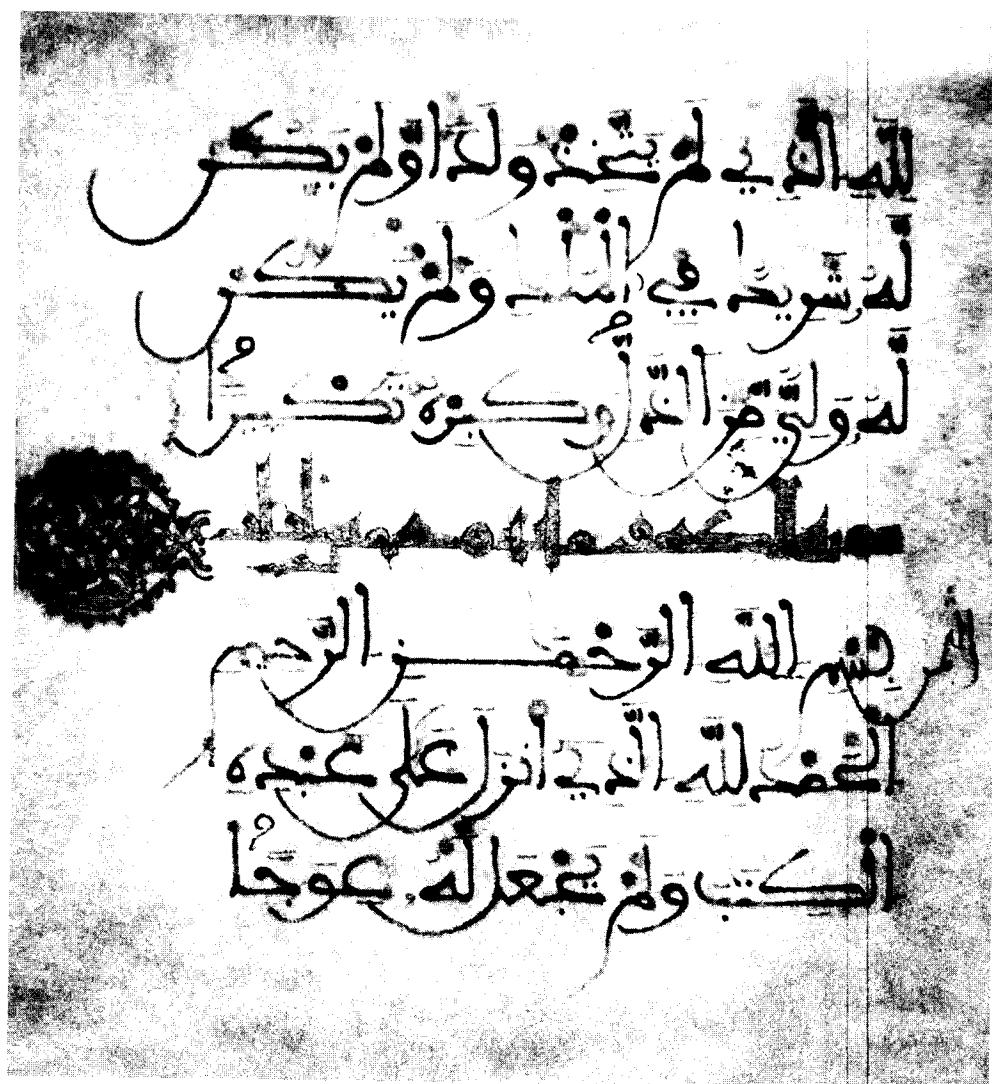 لله الذي لم يتخذ ولدا ولم يكن
له شريك في الملك ولم يكن
له ولي من الذل وكبره تكبيرا
بسم الله الرحمن الرحيم
الحمد لله الذي انزل على عبده
الكتب ولم يجعل له عوجا